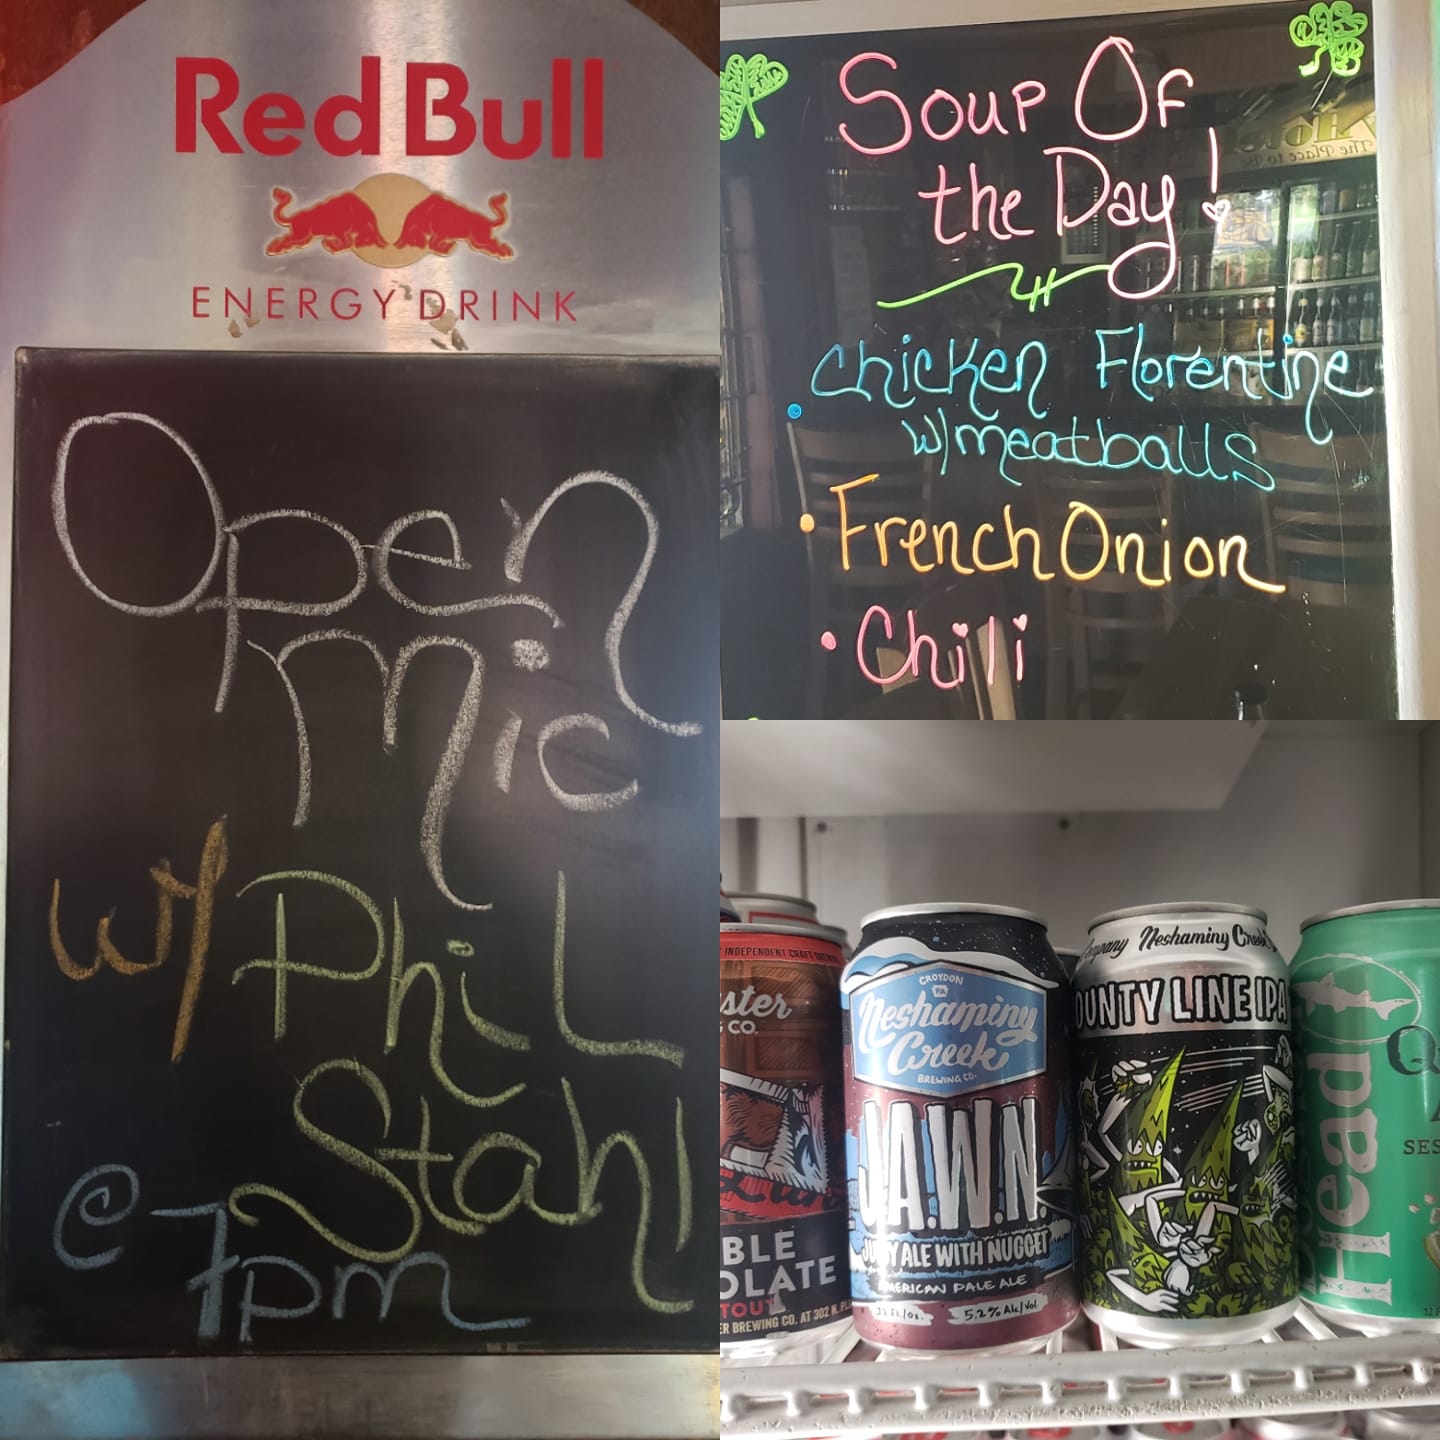 Red Bull
ENERGY DRINK
Open
mic
w/ Phil
Stahl
@ 7pm
Soup Of
the Day!
• Chicken Florentine
w/meatballs
• French Onion
• Chili
The Place to Be
INDEPENDENT CRAFT
ster
CO.
BLE
OLATE
TOUT
ER BREWING CO. AT 302 N. PL
CROYDON
PA
Neshaminy
Creek
BREWING CO.
J.A.W.N.
JUICY ALE WITH NUGGET
AMERICAN PALE ALE
12 FL/oz. 5.2% Alc/Vol.
Company Neshaminy Creek
OUNTY LINE IPA
Head
SES
12 F